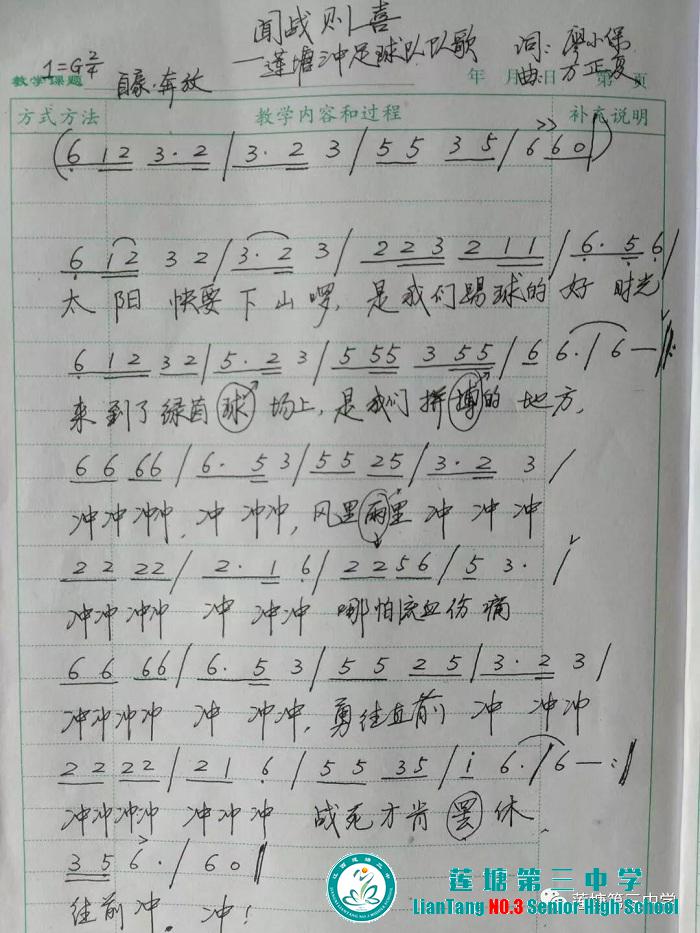 闻战则喜
—莲塘冲足球队队歌
词：廖小保
曲：方正夏
1=G 2/4
自豪·奔放
教学课题
年 月 日 第 页
方式方法 教学内容和过程 补充说明
(6 12 3·2 / 3·2 3 / 55 35 / 6 60)
6 12 32 / 3·2 3 / 223 211 / 6·5 6 /
太阳 快要下山啰，是我们踢球的好时光
6 12 32 / 5·2 3 / 5 55 3 55 / 6 6· / 6 — :‖
来到了绿茵球场上，是我们拼搏的地方，
66 66 / 6·5 3 / 55 25 / 3·2 3 /
冲冲冲冲，冲 冲冲，风里雨里 冲 冲 冲
22 22 / 2·1 6 / 2256 / 5 3· /
冲冲 冲冲 冲 冲冲 哪怕流血伤痛
66 66 / 6·5 3 / 55 25 / 3·2 3 /
冲冲冲冲 冲 冲冲，勇往直前 冲 冲冲
22 22 / 21 6 / 55 35 / i 6· / 6 — :‖
冲冲冲冲 冲冲冲 战死才肯罢休、
35 6· / 60 ‖
往前冲． 冲！
莲塘第三中学
莲塘第三中学
LianTang NO.3 Senior High School